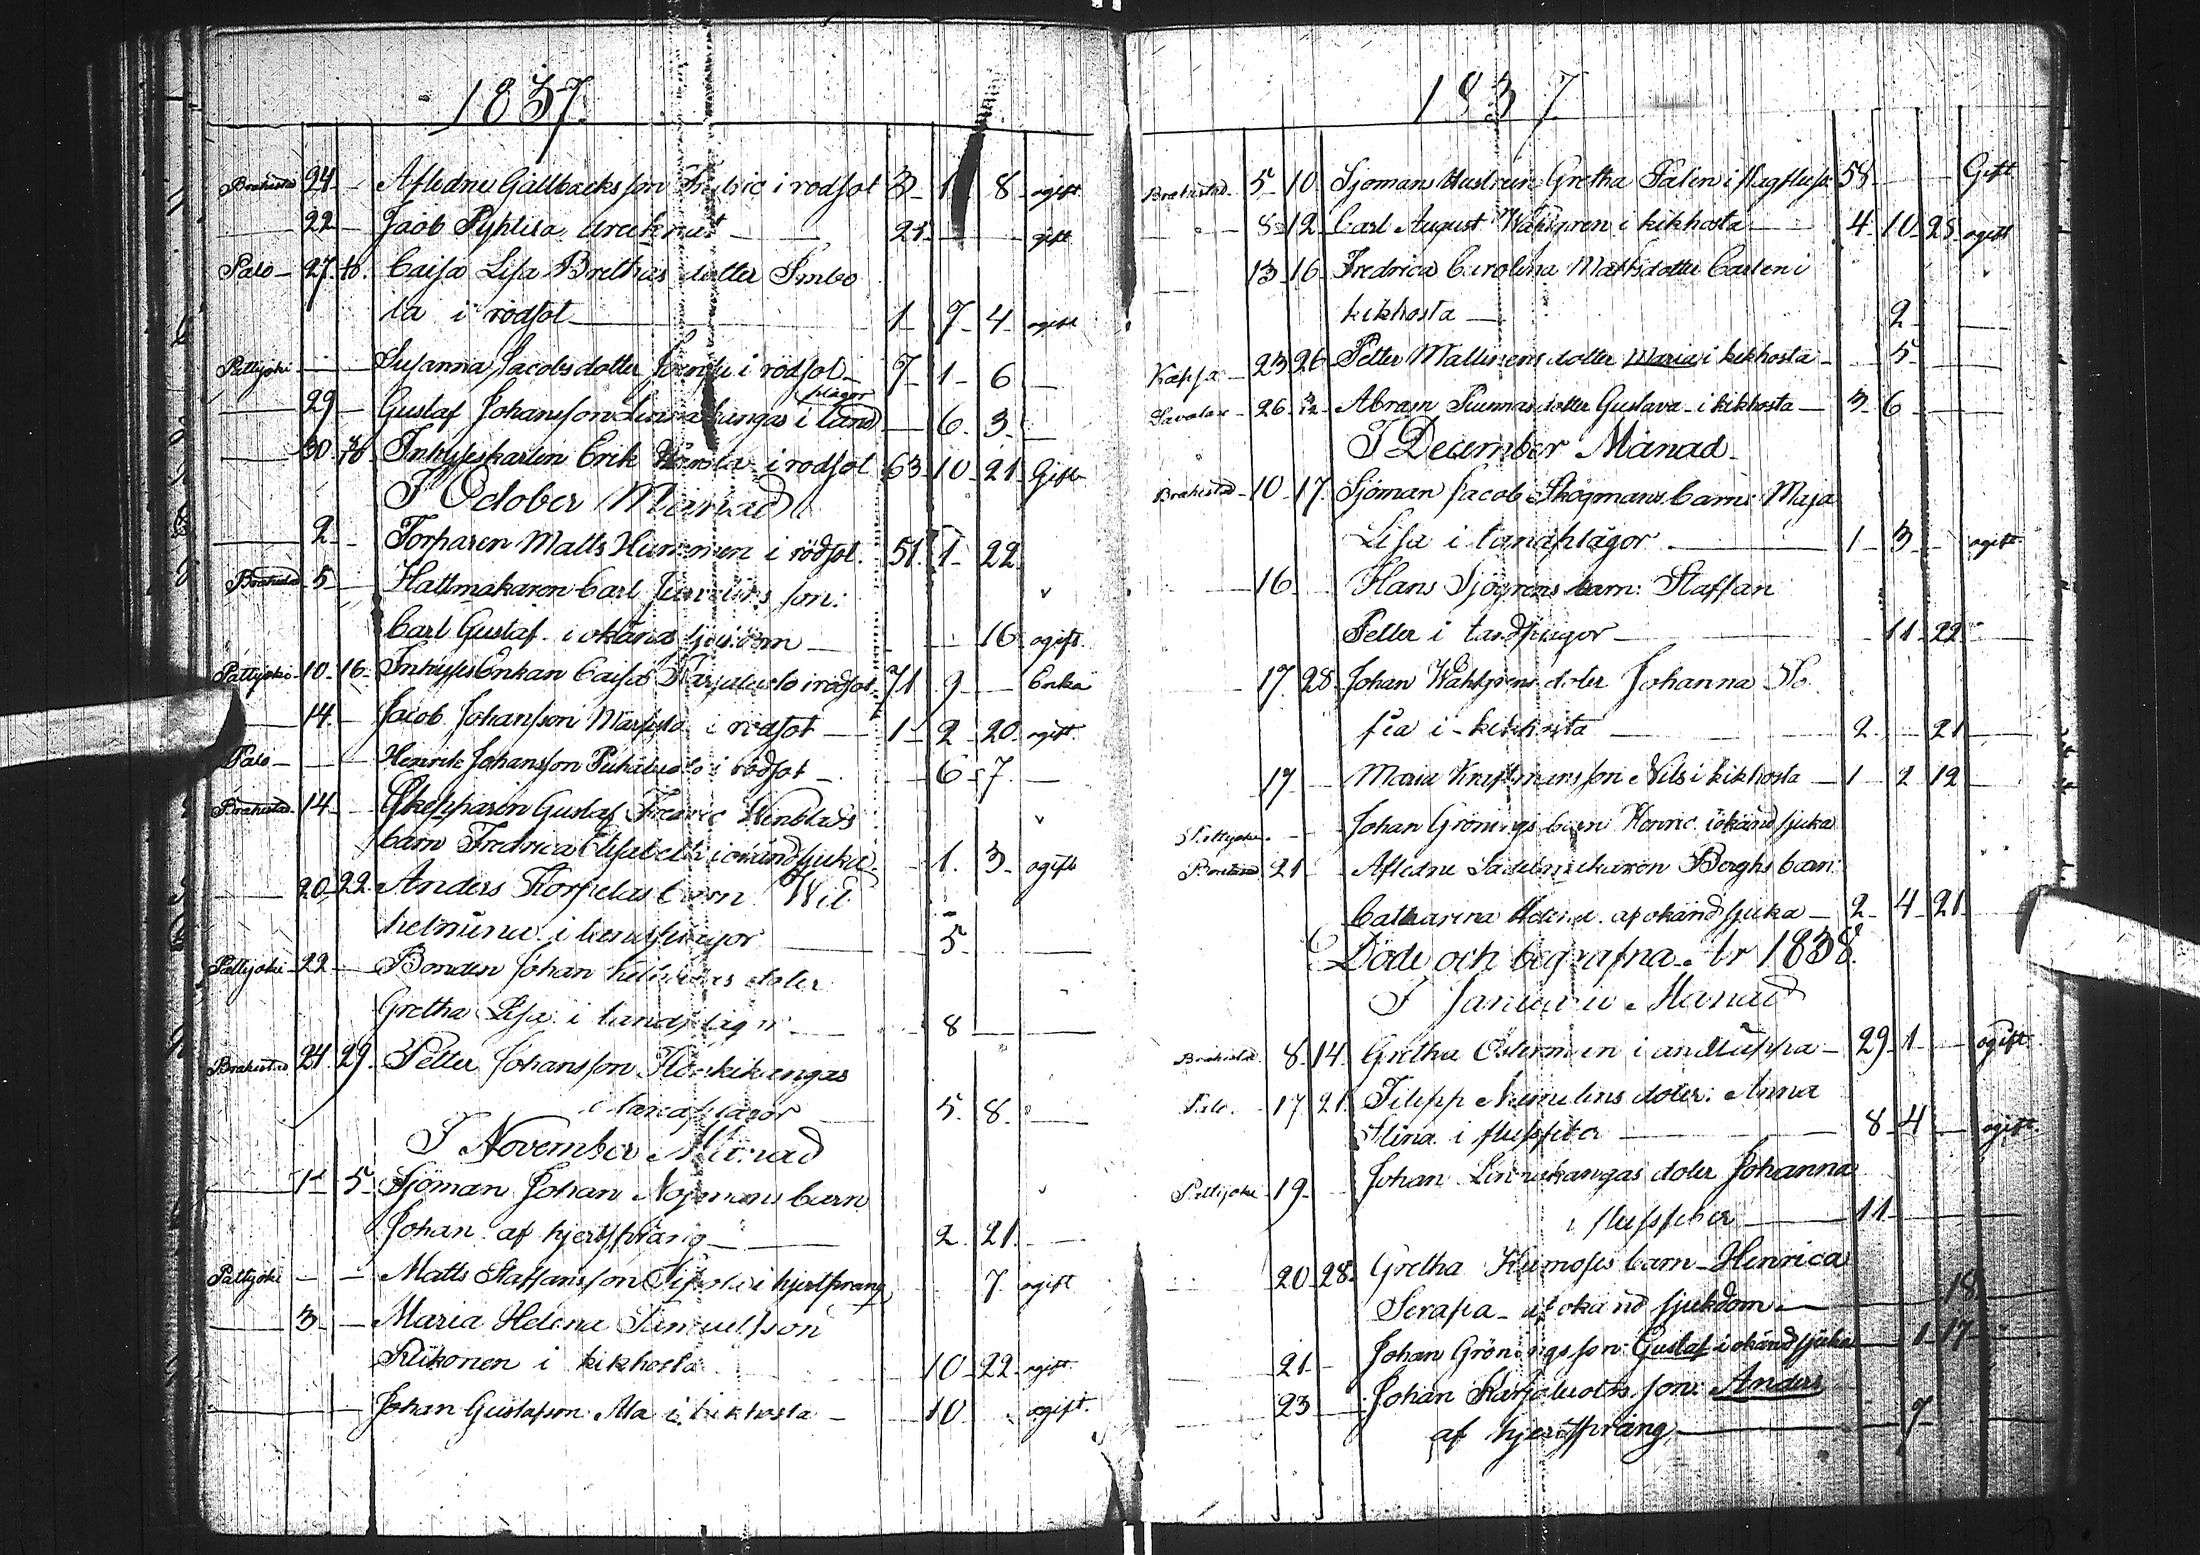 1837
Brahestad 24 - Afledne Gallbacks son Fredric i rödsot 3 - 1 8 - ogift
22 - Jacob Pyhlisa 21 - gift
Palo - 27 Caisa Lisa Brethas dotter
la i rödsot 1 - 7 - 4 - ogift
Pattijoki - - Susanna Jacobsdotter i rödsot - 7 - 1 - 6 -
plågor
29 - Gustaf Johansson Linnakangas i tand - 6 - 3 -
30 Inhysekarlen Erik i rodsot 63 - 10 - 21 - Gift
I October Månad
2 - Torparen Matts i rödsot. 51 - 1 - 22
Brahestad 5 - Hattmakaren Carl son:
Carl Gustaf i okänd 16 ogift.
Pattijoki 10 - 16 - Inhyses Enkan Caisa Karjaluoto i rödsot 71 9 - Enka
14 - Jacob Johansson i rödsot - 1 - 2 - 20 ogift
Palo - - Henrik Johansson i rödsot - 6 - 7 -
Brahestad 14 - Skepparen Gustaf Fredric Wenblads
barn Fredrica Elisabeth i okänd sjuka 1. 3 - ogift
20 22 Anders Korpelas barn Wil
helmina i tandplågor 5 -
Pattijoki 22 - Bonden Johan doter
Gretha Lisa i tandplågor 8
Brahestad 24 29. Petter Johansson
i tandplågor 5. 8 -
I November Månad
1 - 5 - Sjöman Johan barn
Johan af hjertsprång 2. 21.
Pattijoki - - Matts Staffansson i hjertsprang 7 ogift
3 - Maria Helena Samuelsson
i kikhosta 10 - 22 - ogift
Johan Gustafson Ala i kikhosta - 10 ogift.
1837
Brahestad 5 - 10 Sjömans Hustrun Gretha Palen i slagfluss 58 - Gift
8 - 12 Carl August Wahlgren i kikhosta 4 - 10 - 28 - ogift
13 - 16 Fredrica Carolina Mattsdotter Carlen i
kikhosta - 2 -
23 26 Petter Mattinens dotter Maria i kikhosta - 5 -
Savolax - 26 Abram dotter Gustava - i kikhosta - 3 - 6 -
I December Månad
Brahestad - 10 - 17. Sjöman Jacob Skogmans barn: Maja
Lisa i tandplågor 1 - 3 - ogift
16 Hans Sjögrens barn: Staffan
Petter i tandplågor - 11 - 22
17 28 Johan Wahlgrens doter Johanna So
fia i kikhosta 2 - 21
17 - Maria son Nils i kikhosta - 1 - 2 12
Pattijoki - - Johan Grönings barn Henric i okänd sjuka
Brahestad 21 Afledne Sadelmakaren Berghs barn
Catharina af okänd sjuka - 2 - 4 - 21
Döde och begrafna År 1838
I Januarii Månad
Brahestad 8 - 14 Gretha Österman i andtäppa - 29 - 1 - ogift
Palo. 17 21 Filipp doter: Anna
Stina i flussfeber 8 - 4 - ogift
Pattijoki 19 - Johan Linnakangas doter Johanna
i flussfeber 11
20 - 28 - Gretha barn - Henrica
Serafia - af okänd sjukdom 18
21 - Johan Grönings son: Gustaf i okänd sjuka - 1 - 17 -
23 - Johan Karjaluoto son: Anders
af hjertsprång 7